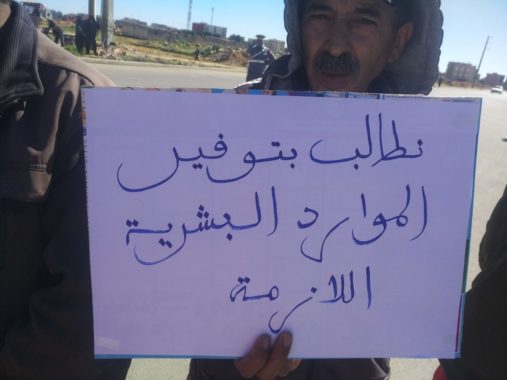 نطالب بتوفير
الموارد البشرية
اللازمة